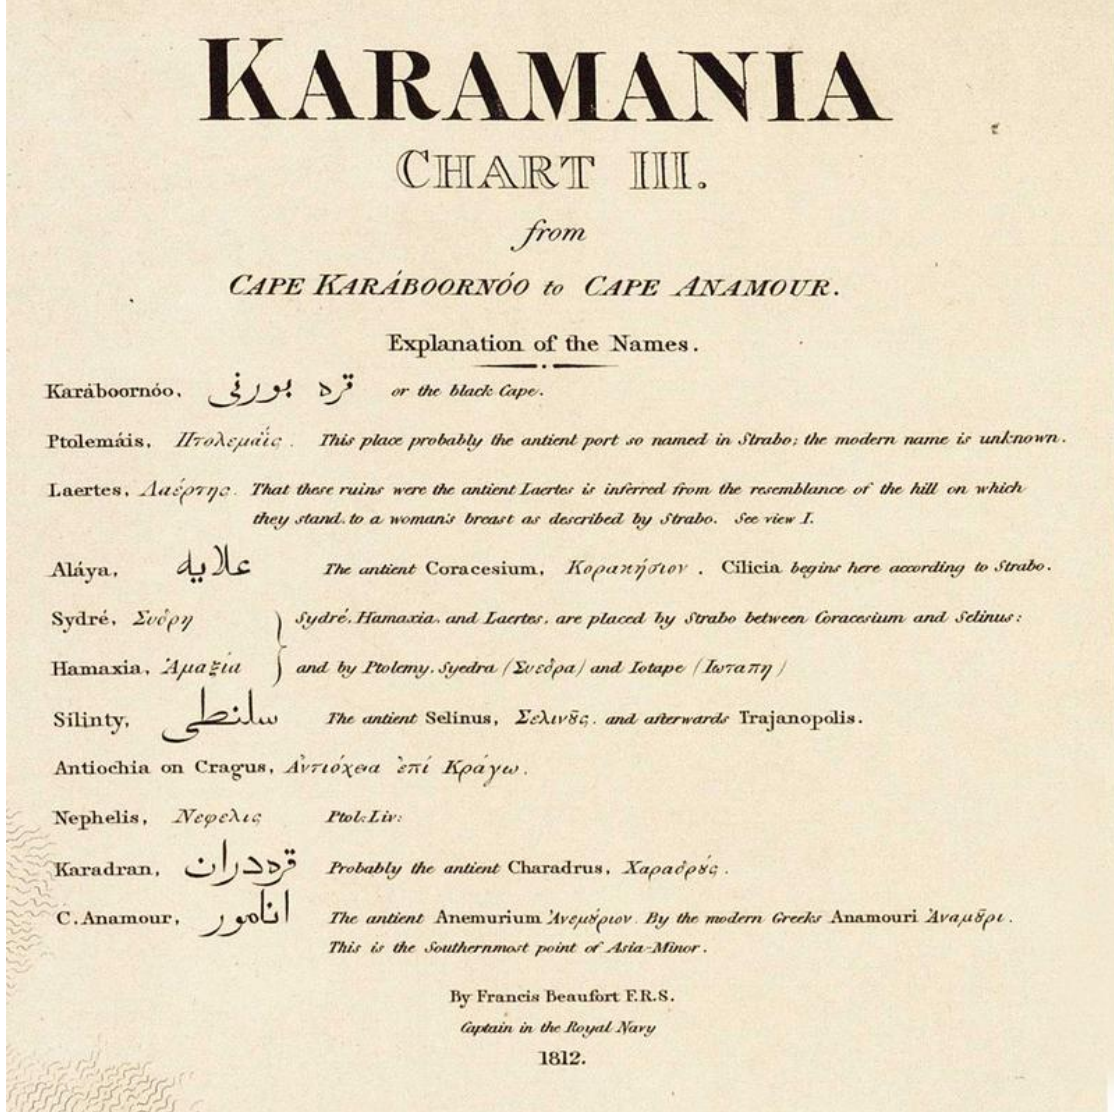 KARAMANIA
CHART III.
from
CAPE KARÁBOORNÓO to CAPE ANAMOUR.
Explanation of the Names.
Karáboornóo, قره بورنى or the black Cape.
Ptolemáis, Πτολεμαΐς. This place probably the antient port so named in Strabo; the modern name is unknown.
Laertes, Λαέρτης. That these ruins were the antient Laertes is inferred from the resemblance of the hill on which
they stand, to a woman's breast as described by Strabo. See view I.
Aláya, علايه The antient Coracesium, Κορακήσιον. Cílicia begins here according to Strabo.
Sydré, Συδρη } Sydré, Hamaxia, and Laertes, are placed by Strabo between Coracesium and Selinus:
Hamaxia, Ἁμαξία } and by Ptolemy, Syedra (Συεδρα) and Iotape (Ιωταπη)
Sílinty, سلنطى The antient Selinus, Σελινȣ͂ς, and afterwards Trajanopolis.
Antiochia on Cragus, Ἀντιόχεια ἐπί Κράγω.
Nephelis, Νεφελις Ptol: Liv:
Karadran, قره دران Probably the antient Charadrus, Χαραδρȣ́ς.
C. Anamour, انامور The antient Anemurium Ἀνεμȣ́ριον. By the modern Greeks Anamouri Ἀναμȣ͂ρι.
This is the Southernmost point of Asia-Minor.
By Francis Beaufort F.R.S.
Captain in the Royal Navy
1812.